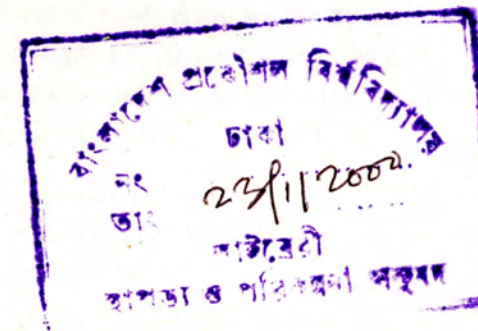 বাংলাদেশ প্রকৌশল বিশ্ববিদ্যালয়
ঢাকা
নং
তাং 23/1/2002.
লাইব্রেরী
স্থাপত্য ও পরিকল্পনা অনুষদ